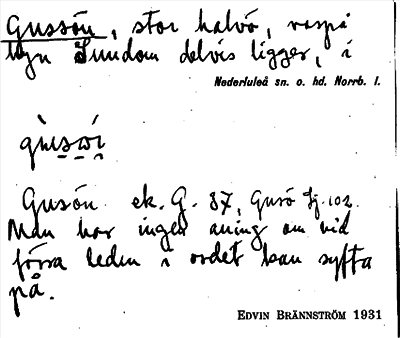 Gussön, stor halvö, varpå
byn Sundom delvis ligger, i
Nederluleå sn. o. hd. Norrb. l.
Gusön ek. G. 37, Gusö Sj. 102.
Man har ingen aning om vid
förra leden i ordet kan syfta
på.
EDVIN BRÄNNSTRÖM 1931